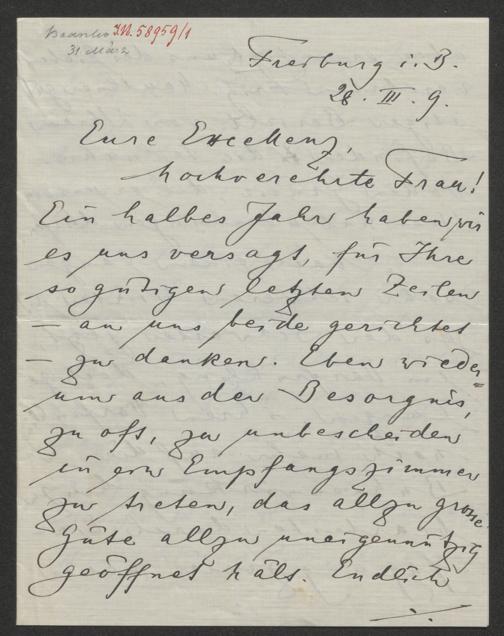 Beantw. I.N. 58959/1
31 März
Freiburg i. B.
28. III. 9.
Eure Excellenz,
hochverehrte Frau!
Ein halbes Jahr haben wir
es uns versagt, für Ihre
so gütigen letzten Zeilen
– an uns beide gerichtet
– zu danken. Eben wieder=
um aus der Besorgnis,
zu oft, zu unbescheiden
in ein Empfangszimmer
zu treten, das allzu grosse
Güte allzu uneigennützig
geöffnet hält. Endlich
./.